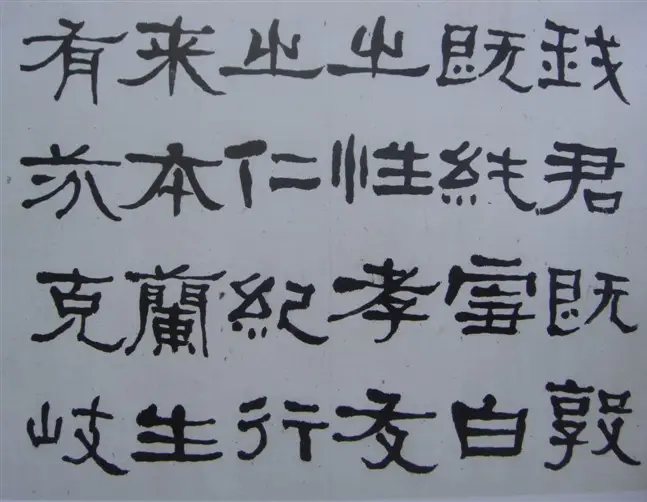 我君既敦
既純雪白
之性孝友
之仁紀行
来本蘭生
有芬克岐